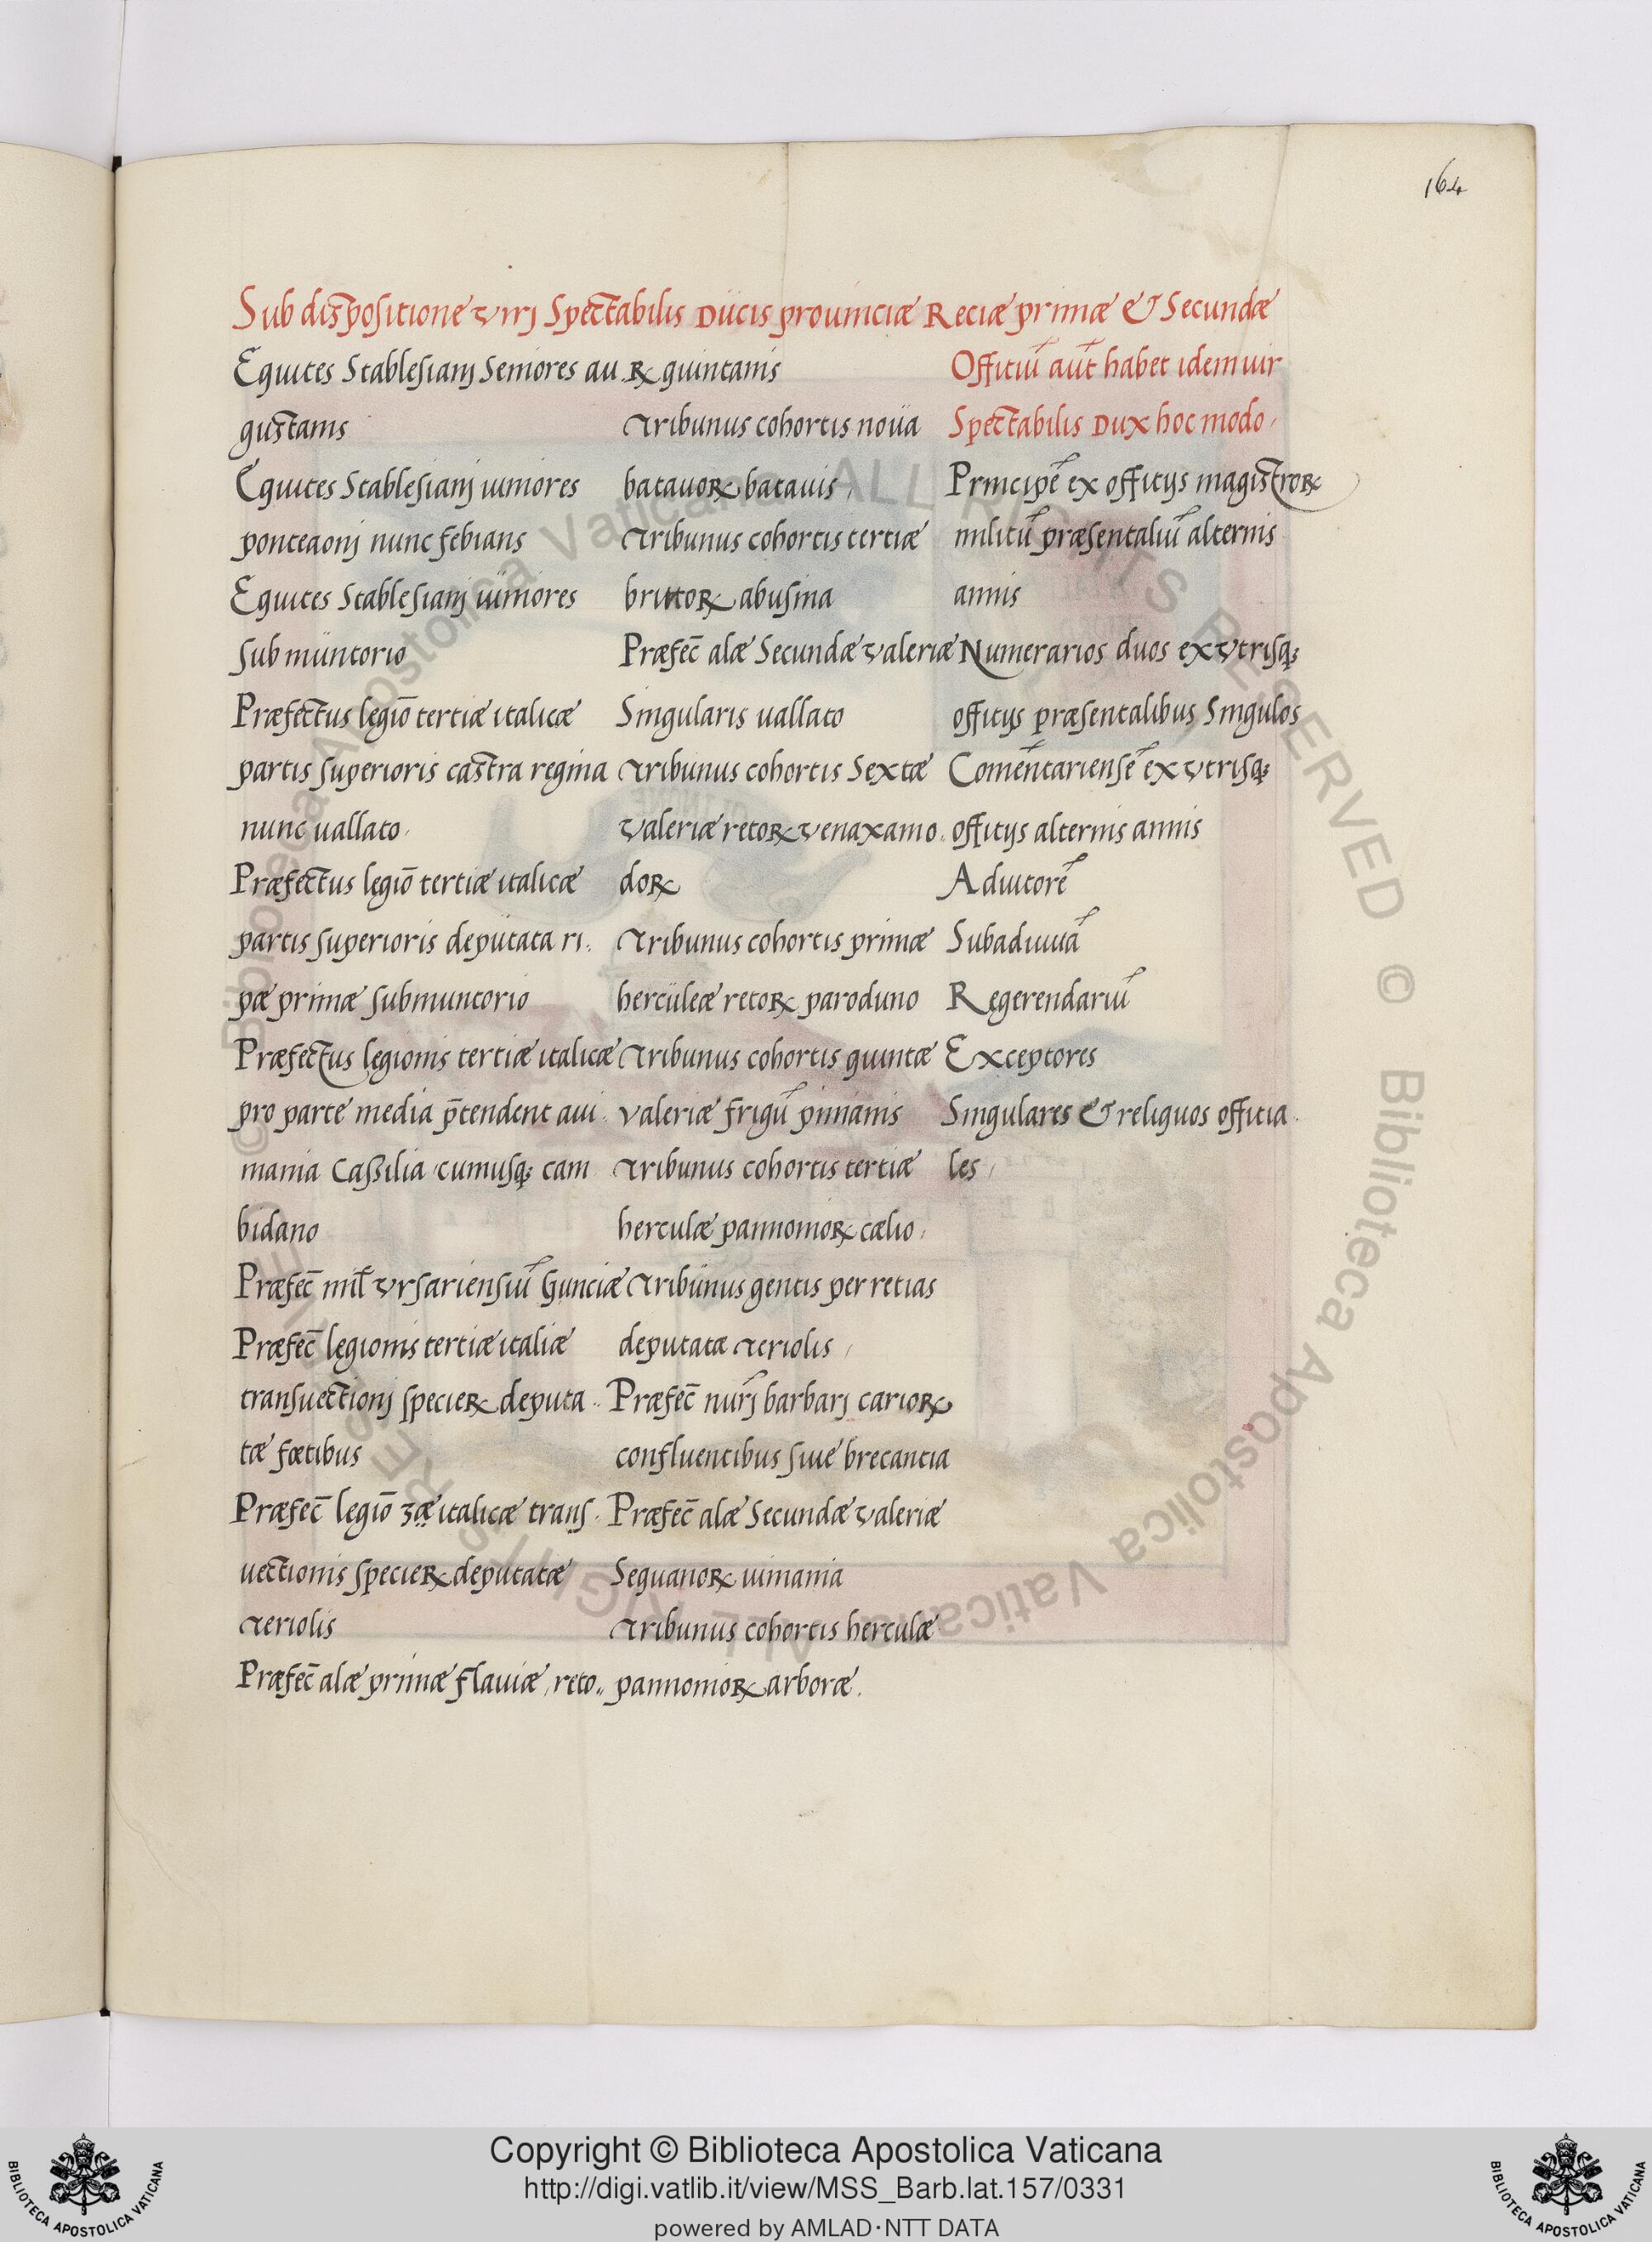 164
Sub dispositione virj Spectabilis Ducis prouinciæ Reciæ primæ & Secundæ
Equites Stablesianj Seniores au
gustanis
Equites Stablesianj iuniores
ponteaonj nunc febianis
Equites Stablesianj iuniores
Submuntorio
Præfectus legiō tertiæ italicæ
partis superioris castra regina
nunc uallato
Præfectus legiō tertiæ italicæ
partis superioris deputata ri
pæ primæ submuntorio
Præfectus legionis tertiæ italicæ
pro parte media p̄tendent aui
mania Cassilia cumusq; cam
bidano
Præfec̄ mil̄ vrsariensiū Gunciæ
Præfec̄ legionis tertiæ italiæ
transuectionj specieꝝ deputa
tæ fœtibus
Præfec̄ legiō 3æ italicæ trans
uectionis specieꝝ deputatæ
Teriolis
Præfec̄ alæ primæ flauiæ reto
ꝝ quintanis
Tribunus cohortis noua
batauoꝝ batauis
Tribunus cohortis tertiæ
brittoꝝ abusina
Præfec̄ alæ Secundæ valeriæ
Singularis uallato
Tribunus cohortis Sextæ
valeriæ retoꝝ venaxamo
doꝝ
Tribunus cohortis primæ
herculeæ retoꝝ paroduno
Tribunus cohortis quintæ
valeriæ frigū pinianis
Tribunus cohortis tertiæ
herculæ pannonioꝝ cælio
Tribunus gentis per retias
deputatæ Teriolis
Præfec̄ nur̄j barbarj carioꝝ
confluentibus siue brecantia
Præfec̄ alæ Secundæ valeriæ
Sequanoꝝ uimania
Tribunus cohortis herculæ
pannonioꝝ arboræ
Offitiū aūt habet idem uir
Spectabilis Dux hoc modo
Principē ex offitijs magistroꝝ
militū præsentaliū alternis
annis
Numerarios duos ex vtrisq;
offitijs præsentalibus Singulos
Comēntariensē ex vtrisq;
offitijs alternis annis
Adiutorē
Subadiuuā
Regerendariū
Exceptores
Singulares & reliquos offitia
les
© Biblioteca Apostolica Vaticana ALL RIGHTS RESERVED © Biblioteca Apostolica Vaticana ALL RIGHTS RESERVED
Copyright © Biblioteca Apostolica Vaticana
http://digi.vatlib.it/view/MSS_Barb.lat.157/0331
powered by AMLAD·NTT DATA
BIBLIOTECA APOSTOLICA VATICANA
BIBLIOTECA APOSTOLICA VATICANA